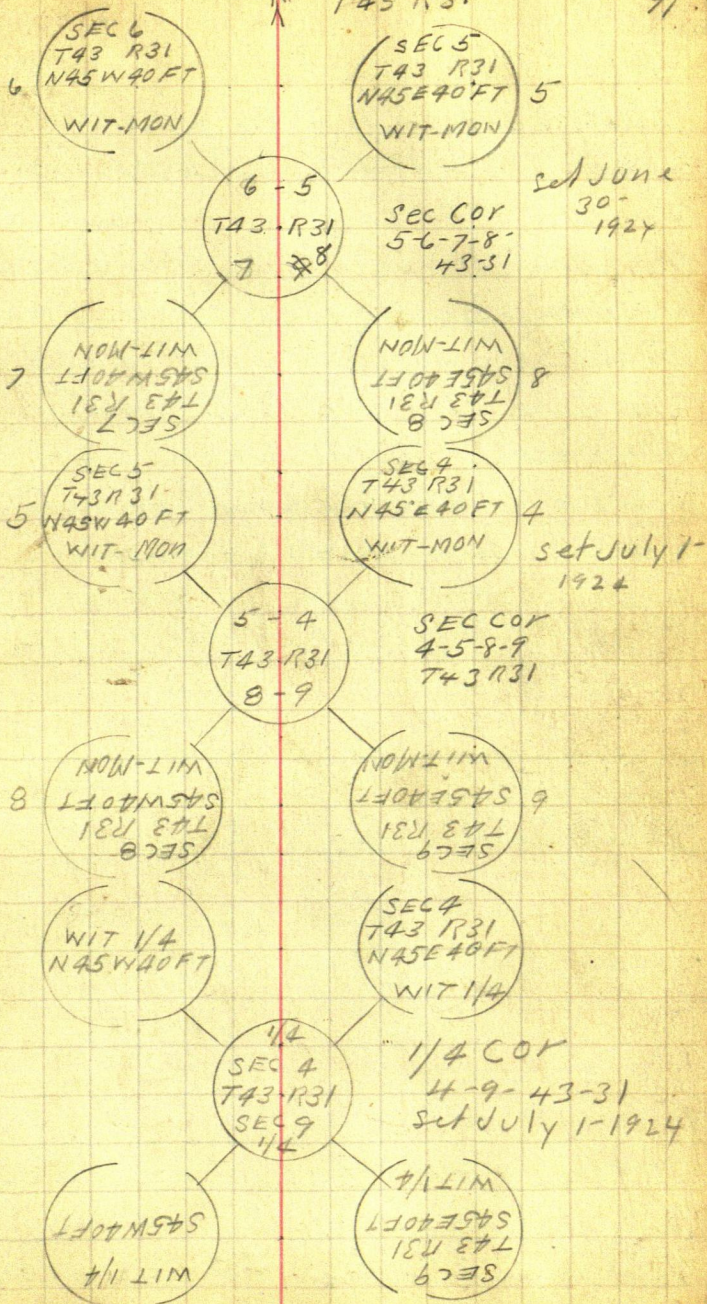 T43 R3
71
SEC 6
T43 R31
N45W40FT
WIT-MON
6
SEC 5
T43 R31
N45E40FT
WIT-MON
5
6 - 5
T43 R31
7 8
Sec Cor
5-6-7-8-
43-31
set June
30-
1924
7
SEC 7
T43 R31
S45W40FT
WIT-MON
SEC 8
T43 R31
S45E40FT
WIT-MON
8
5
SEC 5
T43 R31
N45W40FT
WIT-MON
SEC 4
T43 R31
N45E40FT
WIT-MON
4
set July 1-
1924
5 - 4
T43 R31
8 - 9
SEC COR
4-5-8-9
T43 R31
8
SEC 8
T43 R31
S45W40FT
WIT-MON
SEC 9
T43 R31
S45E40FT
WIT-MON
9
WIT 1/4
N45W40FT
SEC 4
T43 R31
N45E40FT
WIT 1/4
1/4
SEC 4
T43 R31
SEC 9
1/4
1/4 COR
4-9-43-31
set July 1-1924
WIT 1/4
S45W40FT
SEC 9
T43 R31
S45E40FT
WIT 1/4